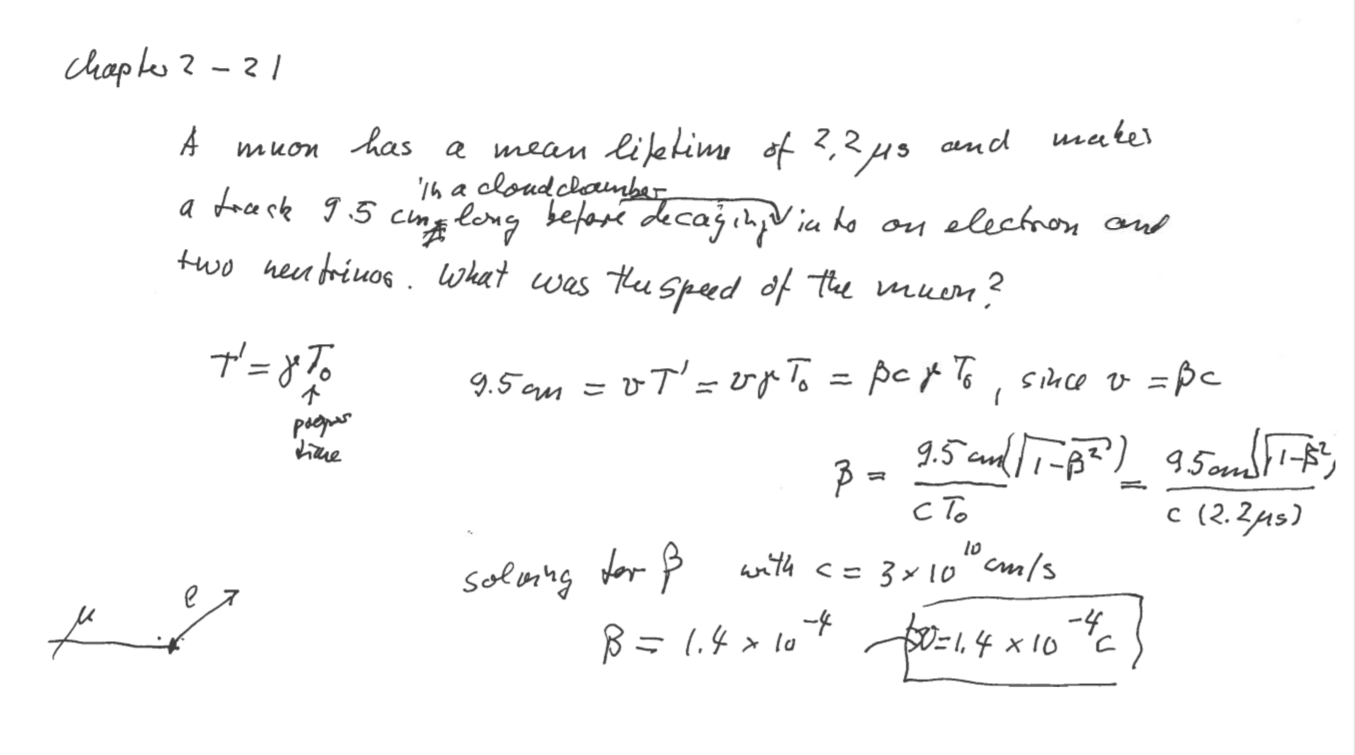 Chapter 2 - 21
A muon has a mean lifetime of 2.2 μs and makes
in a cloud chamber
a track 9.5 cm long before decaying into an electron and
two neutrinos. What was the speed of the muon?
T' = γT₀
↑
proper
time
9.5 cm = vT' = vγT₀ = βcγT₀, since v = βc
β = 9.5 cm(√1-β²) / cT₀ = 9.5 cm(√1-β²) / c (2.2 μs)
solving for β with c = 3 × 10¹⁰ cm/s
μ e
β = 1.4 × 10⁻⁴ v = 1.4 × 10⁻⁴ c